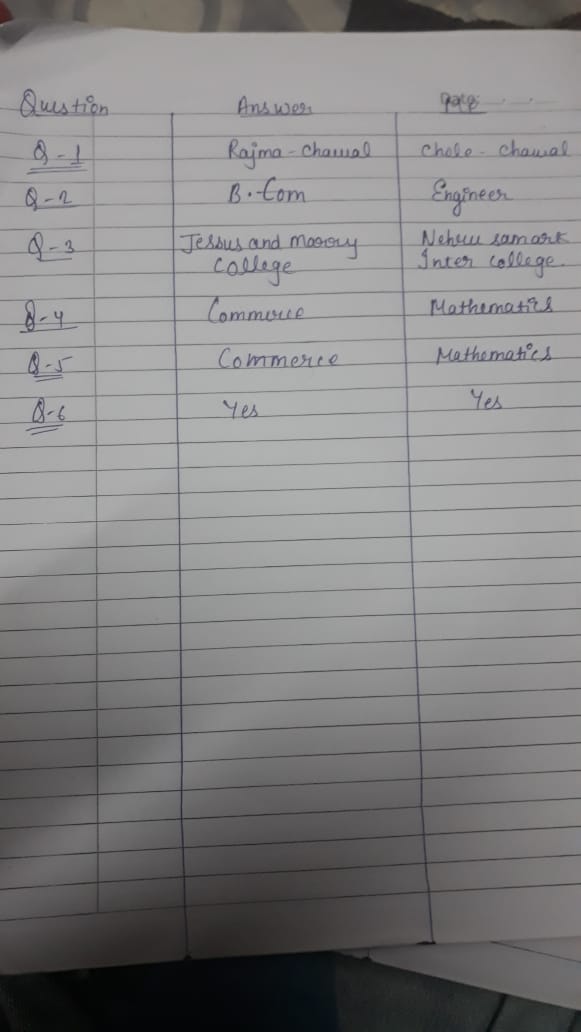 Question Answer
Q-1 Rajma-Chawal Chole-Chawal
Q-2 B.Com Engineer
Q-3 Jesus and Moory Nehru samark
College Inter college
Q-4 Commerce Mathematics
Q-5 Commerce Mathematics
Q-6 Yes Yes